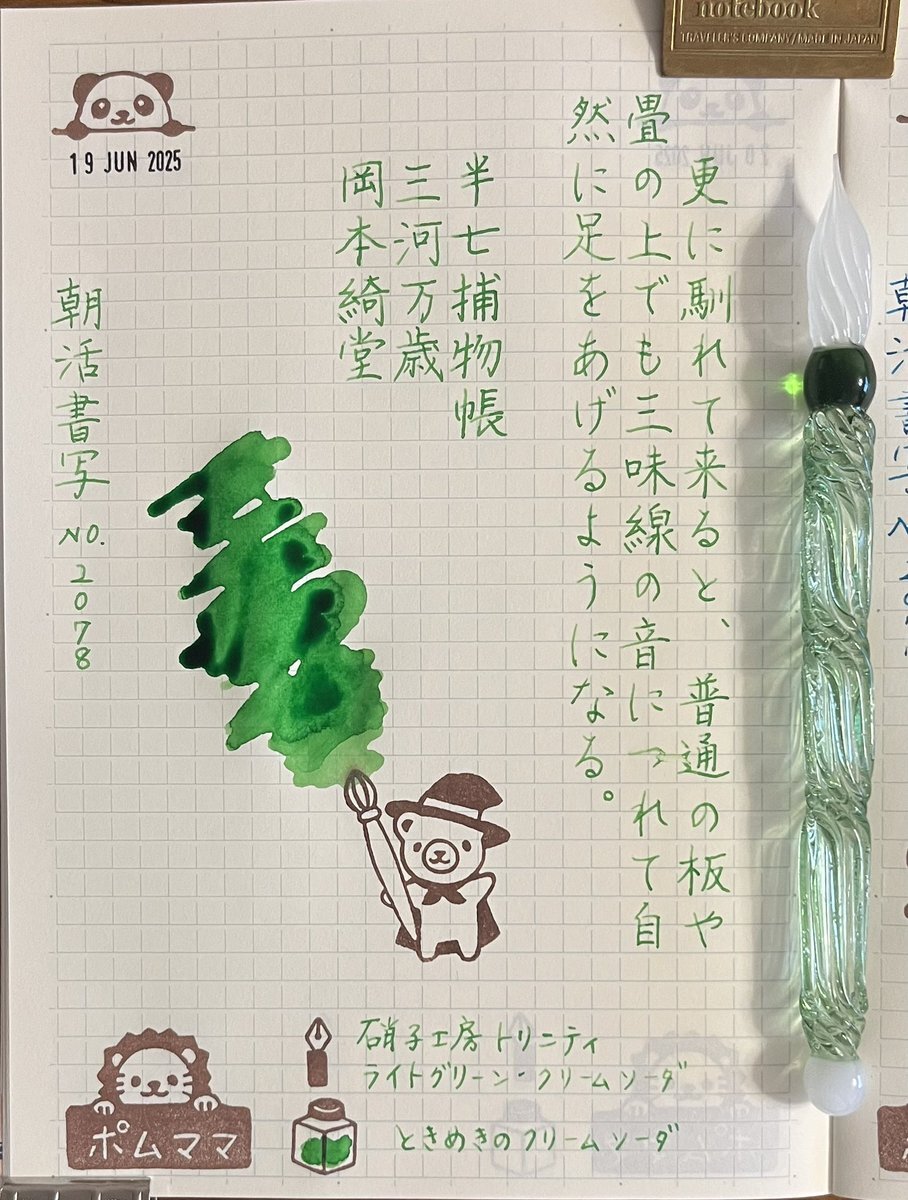 notebook
TRAVELER'S COMPANY/MADE IN JAPAN
19 JUN 2025
更に馴れて来ると、普通の板や
畳の上でも三味線の音につれて自
然に足をあげるようになる。
半七捕物帳
三河万歳
岡本綺堂
朝活書写 NO.2078
硝子工房トリニティ
ライトグリーン・クリームソーダ
ときめきのクリームソーダ
ポムママ